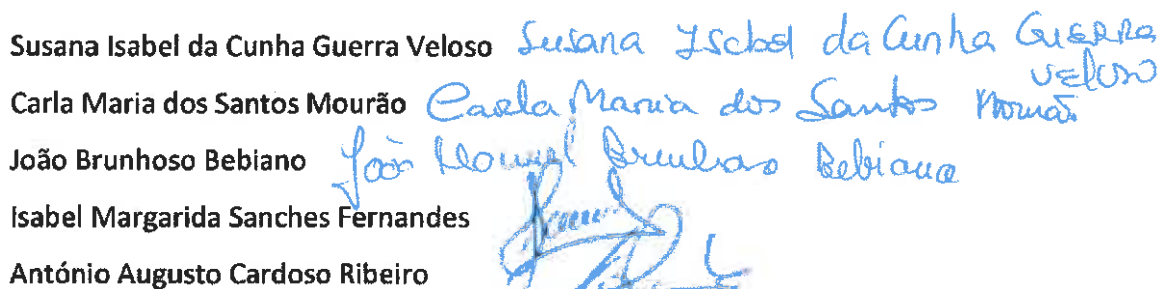 Susana Isabel da Cunha Guerra Veloso Susana Isabel da Cunha Guerra
Veloso
Carla Maria dos Santos Mourão Carla Maria dos Santos Mourão
João Brunhoso Bebiano João Manuel Brunhoso Bebiano
Isabel Margarida Sanches Fernandes
António Augusto Cardoso Ribeiro